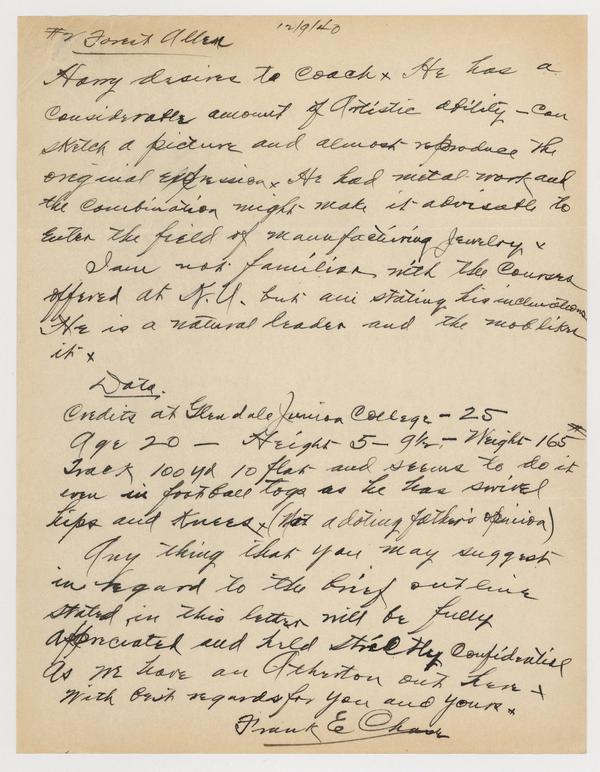 #2 Forest Allen
12/9/40
Harry desires to coach x He has a
considerable amount of Artistic ability - can
sketch a picture and almost reproduce the
original expression x He had metal work and
the combination might make it advisable to
enter the field of manufacturing Jewelry x
I am not familiar with the courses
offered at K.U. but am stating his inclinations
He is a natural leader and the mob likes
it x
Data.
Credits at Glendale Junior College - 25
Age 20 - Height 5-9½ - Weight 165#
Track 100 yd 10 flat and seems to do it
even in football togs as he has swivel
hips and knees x (Not a doting father's opinion)
Any thing that you may suggest
in regard to the brief outline
stated in this letter will be fully
appreciated and held strictly confidential
As we have an Atherton out here x
With best regards for you and yours x
Frank E Chase